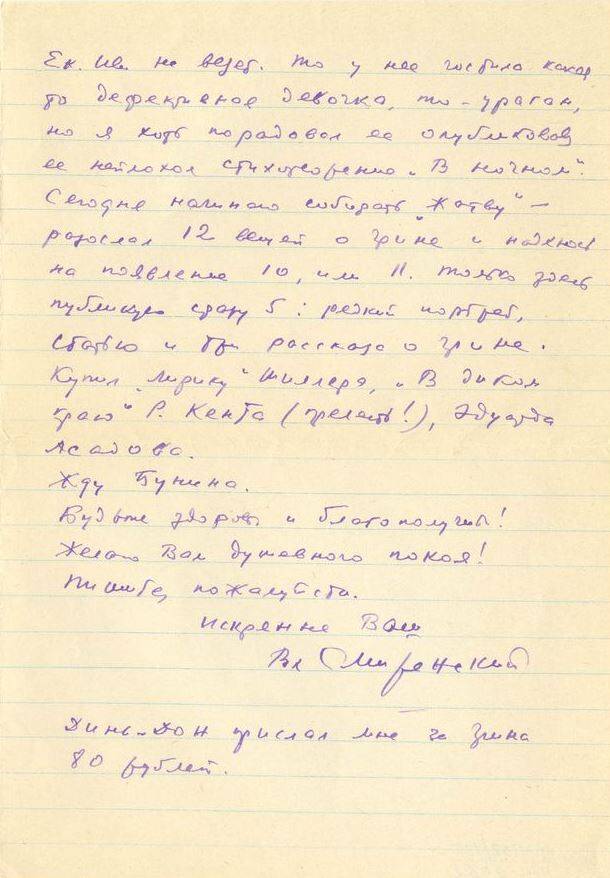 Ек. Ив. не везет. То у нее гостила какая
то дефективная девочка, то - ураган,
но я хоть порадовал ее опубликовав
ее неплохое стихотворение „В ночном".
Сегодня начинаю собирать „Жатву" —
разослал 12 вещей о Грине и надеюсь
на появление 10, или 11. Только здесь
публикую сразу 5: редкий портрет,
статью и три рассказа о Грине.
Купил „Лирику" Шиллера, „В диком
краю" Р. Кента (прелесть!), Эдуарда
Асадова.
Жду Бунина.
Будьте здоровы и благополучны!
Желаю Вам душевного покоя!
Пишите, пожалуйста.
Искренне Ваш
Вл Смиренский
Динь-Дон прислал мне за Грина
80 рублей.